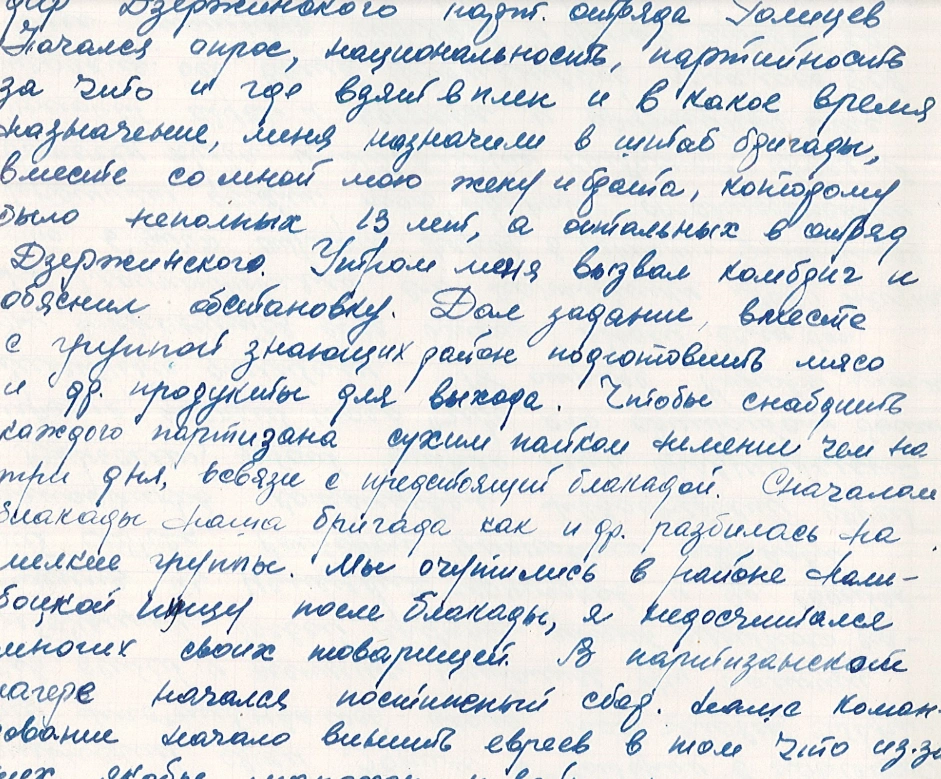 Дзержинского парт. отряда
Начался опрос, национальность, партийность
за что и где взят в плен и в какое время
назначение, меня назначили в штаб бригады,
вместе со мной мою жену и брата, которому
было неполных 13 лет, а остальных в отряд
Дзержинского. Утром меня вызвал комбриг и
обяснил обстановку. Дал задание, вместе
с группой знающих район подготовить мясо
и др. продукты для выхода. Чтобы снабдить
каждого партизана сухим пайком неменее чем на
три дня, всвязи с предстоящей блакадой. Сначалом
блакады наша бригада как и др. разбилась на
мелкие группы. Мы очутились в районе Нали-
боцкой пущу после блакады, я недосчитался
многих своих товарищей. В партизанском
лагере начался постписный сбор. Наше коман-
дование начало винить евреев в том что из-за
них якобы